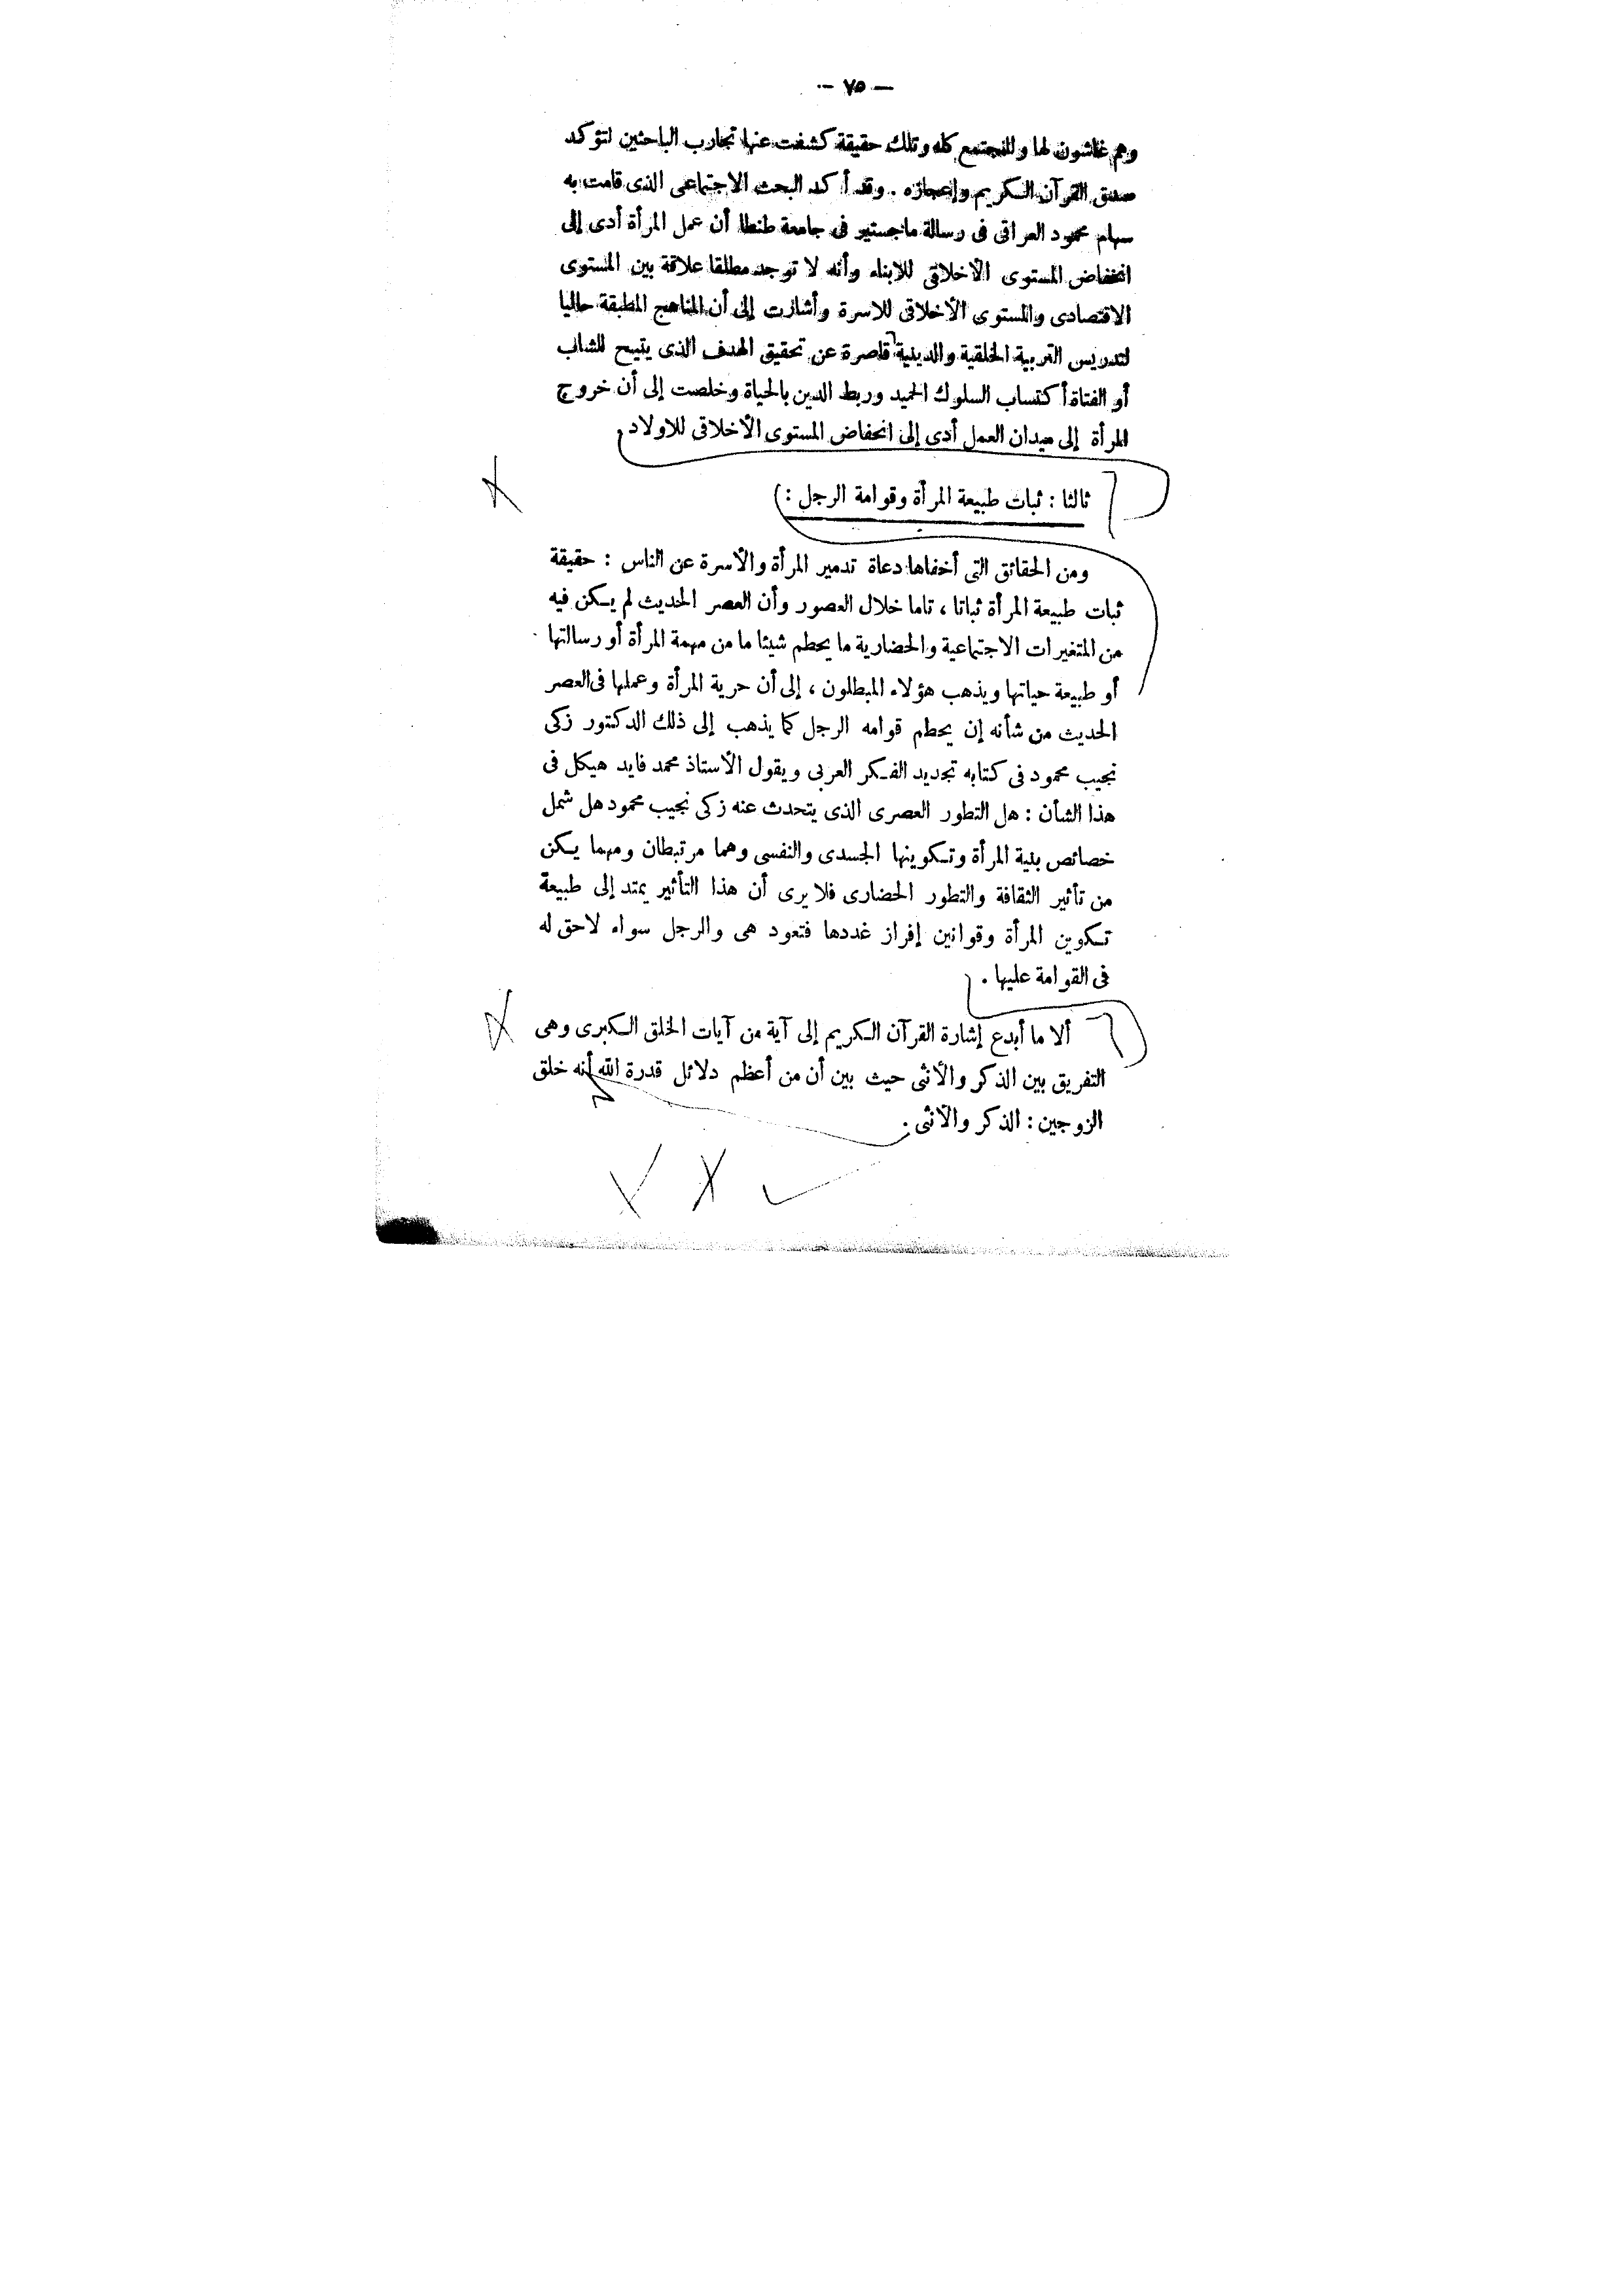 — ٧٥ —
وهم غاشون لها وللمجتمع كله وتلك حقيقة كشفت عنها تجارب الباحثين لتؤكد
صدق القرآن الكريم وإعجازه . وقد أكد البحث الاجتماعى الذى قامت به
سهام محمود العراقى فى رسالة ماجستير فى جامعة طنطا أن عمل المرأة أدى إلى
انخفاض المستوى الأخلاقى للابناء وأنه لا توجد مطلقا علاقة بين المستوى
الاقتصادى والمستوى الأخلاقى للاسرة وأشارت إلى أن المناهج المطبقة حاليا
لتدريس التربية الخلقية والدينية قاصرة عن تحقيق الهدف الذى يتيح للشاب
أو الفتاة أكتساب السلوك الحميد وربط الدين بالحياة وخلصت إلى أن خروج
المرأة إلى ميدان العمل أدى إلى انحفاض المستوى الأخلاقى للاولاد .
ثالثا : ثبات طبيعة المرأة وقوامة الرجل :
ومن الحقائق التى أخفاها دعاة تدمير المرأة والأسرة عن الناس : حقيقة
ثبات طبيعة المرأة ثباتا ، تاما خلال العصور وأن العصر الحديث لم يكن فيه
من المتغيرات الاجتماعية والحضارية ما يحطم شيئا ما من مهمة المرأة أو رسالتها
أو طبيعة حياتها ويذهب هؤلاء المبطلون ، إلى أن حرية المرأة وعملها فى العصر
الحديث من شأنه إن يحطم قوامه الرجل كما يذهب إلى ذلك الدكتور زكى
نجيب محمود فى كتابه تجديد الفكر العربى ويقول الأستاذ محمد فايد هيكل فى
هذا الشأن : هل التطور العصرى الذى يتحدث عنه زكى نجيب محمود هل شمل
خصائص بنية المرأة وتكوينها الجسدى والنفسى وهما مرتبطان ومهما يكن
من تأثير الثقافة والتطور الحضارى فلا يرى أن هذا التأثير يمتد إلى طبيعة
تكوين المرأة وقوانين إفراز غددها فتعود هى والرجل سواء لاحق له
فى القوامة عليها .
ألا ما أبدع إشارة القرآن الكريم إلى آية من آيات الخلق الكبرى وهى
التفريق بين الذكر والأنثى حيث بين أن من أعظم دلائل قدرة الله أنه خلق
الزوجين : الذكر والأنثى .